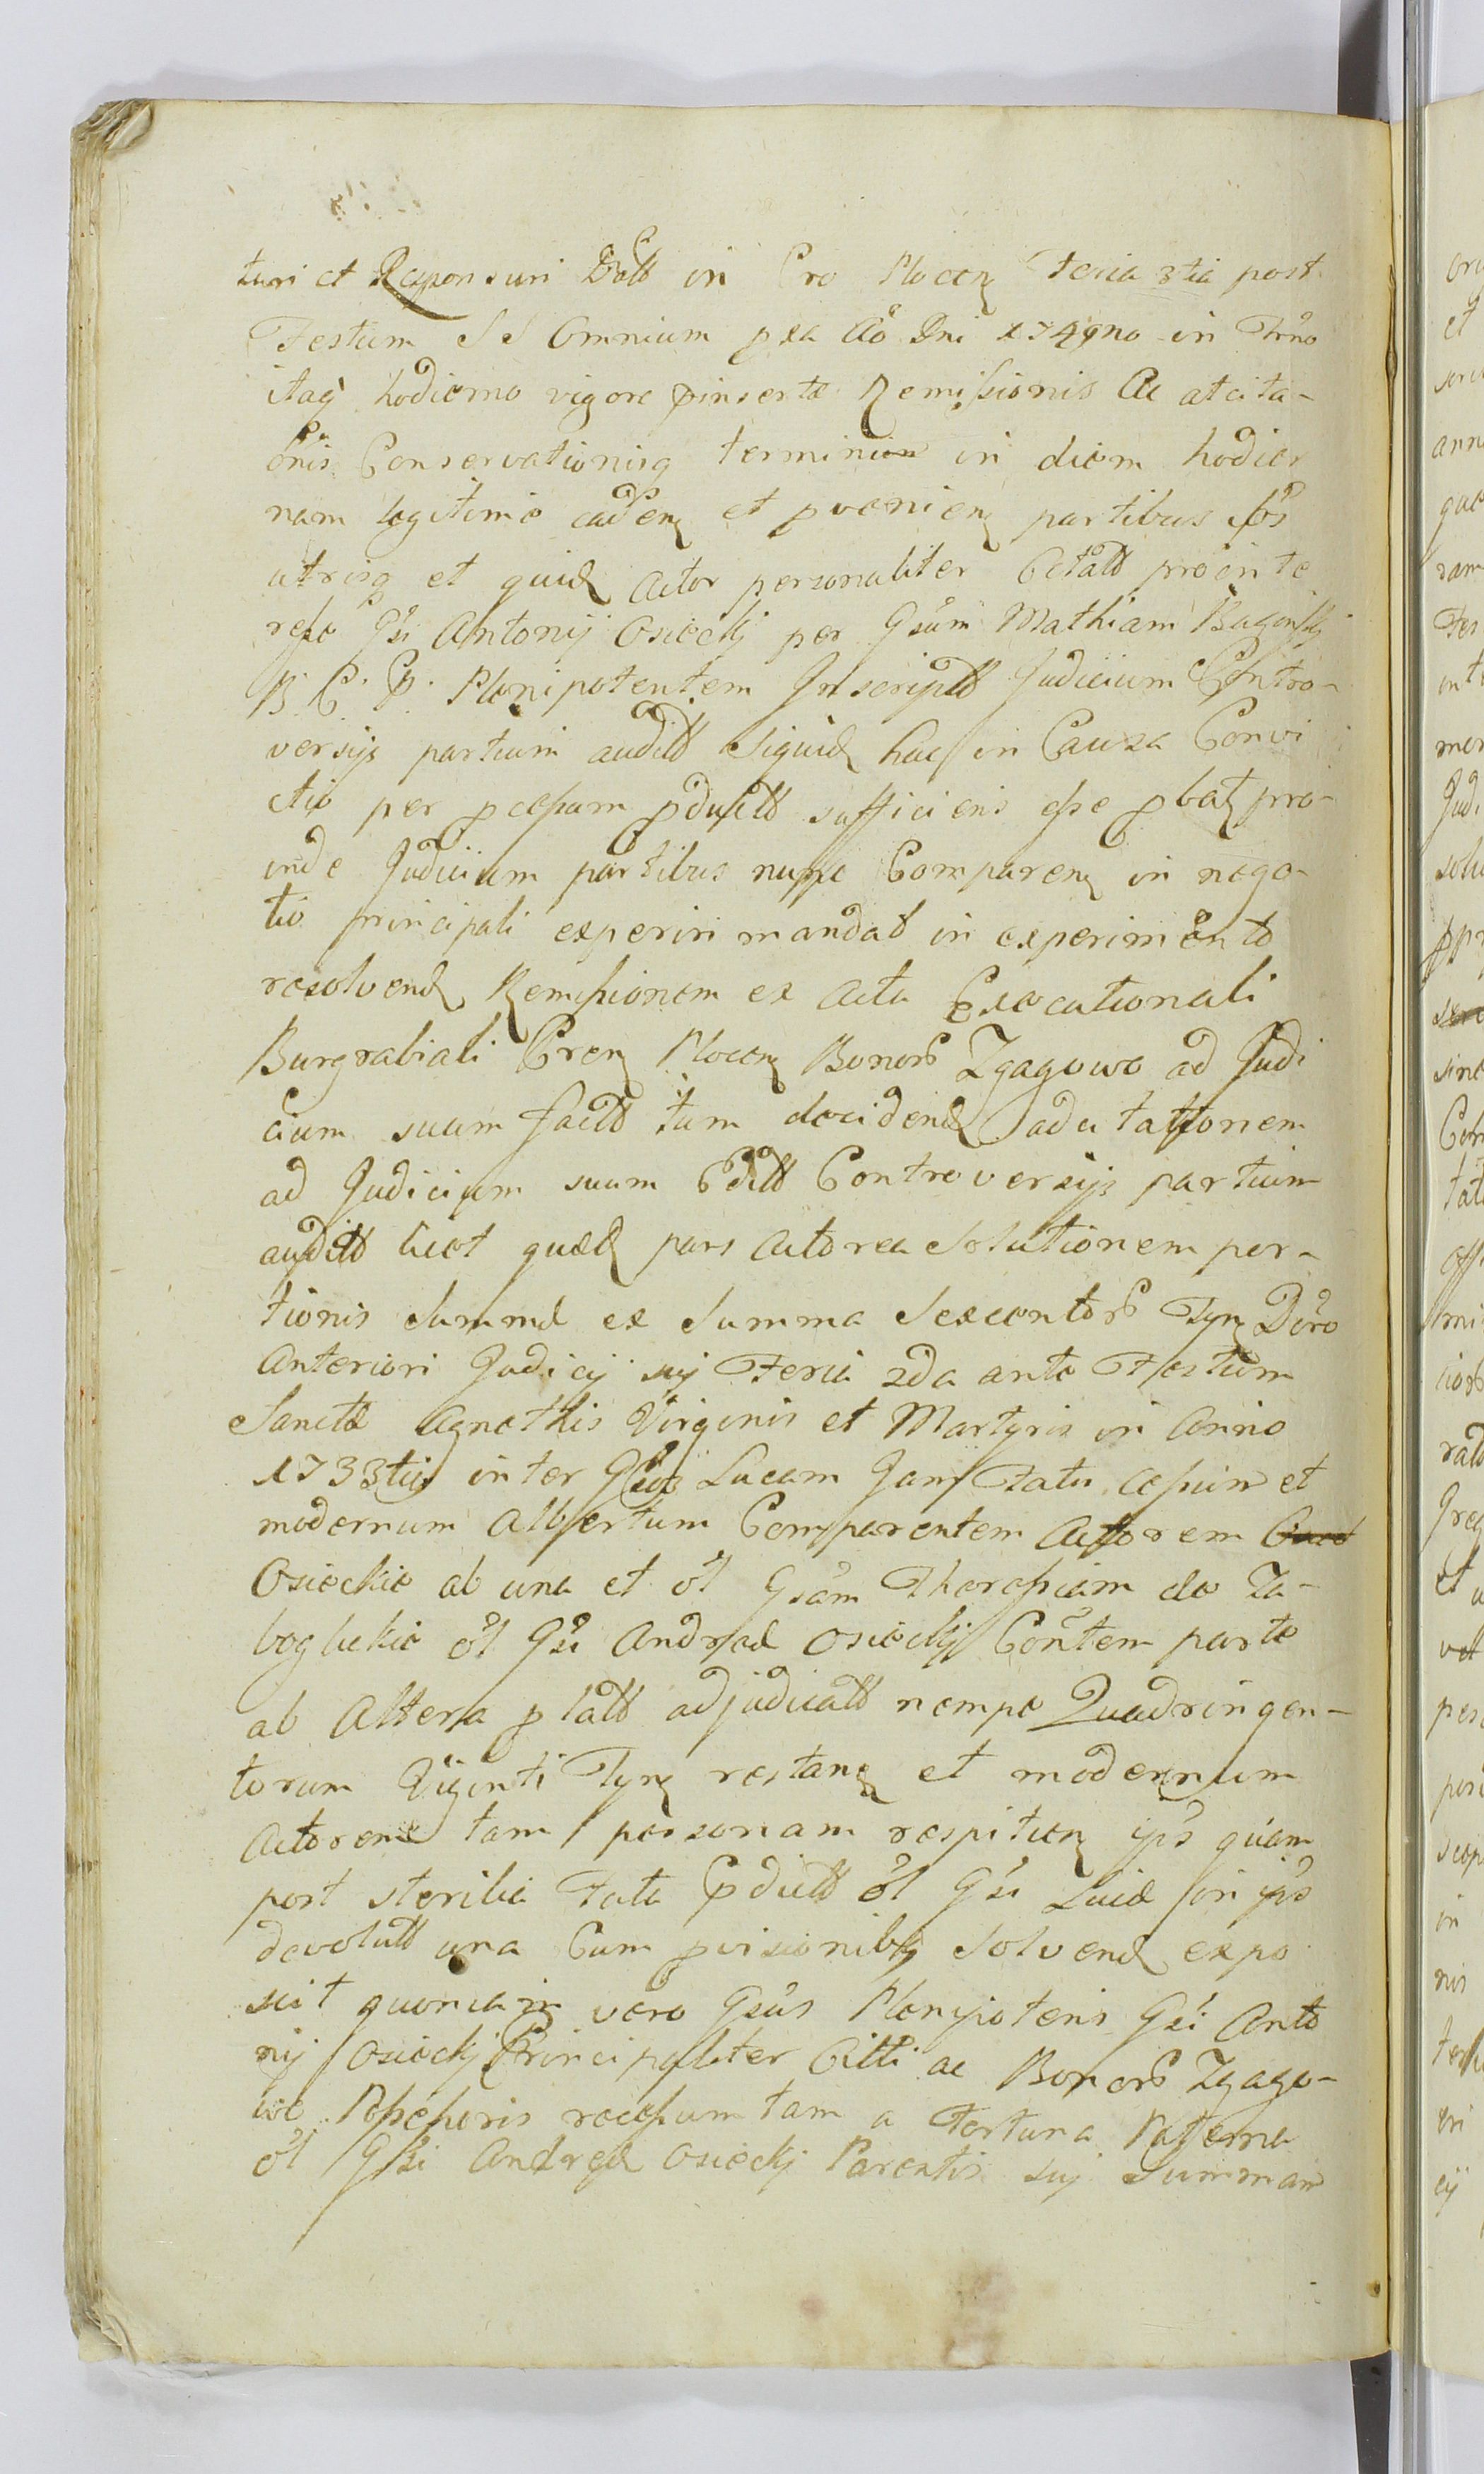 turi et Responsuri Datt in Cro Plocen Feria 3tia post
Festum SS Omnium pxa Ao Dni 1749no in Trno
itaq hodierno vigore pinsertæ Remissionis Ac atcita-
onis Conservationisq terminum in diem hodier
nam legitime caden et pvenien partibus
utrisq et quid Actor personaliter Citatt pro inte
resse Gsi Antonij Osiecki per Gsum Mathiam
B. C. P. Plenipotentem Inscriptt Judicium Contro-
versijs partium auditt siquid hac in Causa Convi
ctio per pcessum pductt sufficiens esse pbat pro-
inde Judicium partibus nuppe Comparen in nego-
tio principali experiri mandat in experimento
resolvend Remissionem ex Actu Executionali
Burgrabiali Cren Plocen Bonorum Zgagowo ad Judi
cium suum factt tum decidend adcitationem
ad Judicium suum Editt Controversijs partium
auditt licet quæd pars Actorea Solutionem por-
tionis Summæ ex Summa Sexcentorum Tyn Dcro
Anteriori Judicij sui Feria 2da ante Festum
Sanctæ Agnethis Virginis et Martyris in Anno
1733tio inter Gsos Lucam Jam Fatis cessum et
modernum Albertum Comparentem Actorem
Osieckie ab una et ol Gsam Theressiam de Za-
boglukie ol Gsi Andreæ Osiecki Contem parte
ab Altera platt adjudicatt nempe Quadringen-
torum Viginti Tyn restan et modernum
Actorem tam personam respicien ips quam
post sterilia Fata pductt ol Gsi Lucæ in ips
devolutt una Cum pvisionibq Solvend expo
scit quoniam vero Gsus Plenipotens Gsi Anto
nij Osiecki Principaliter Citti ac Bonorum Zgago-
wo Possessoris recessum tam a Fortuna Paterna
ol Gsi Andreæ Osiecki Parentis sui Summam